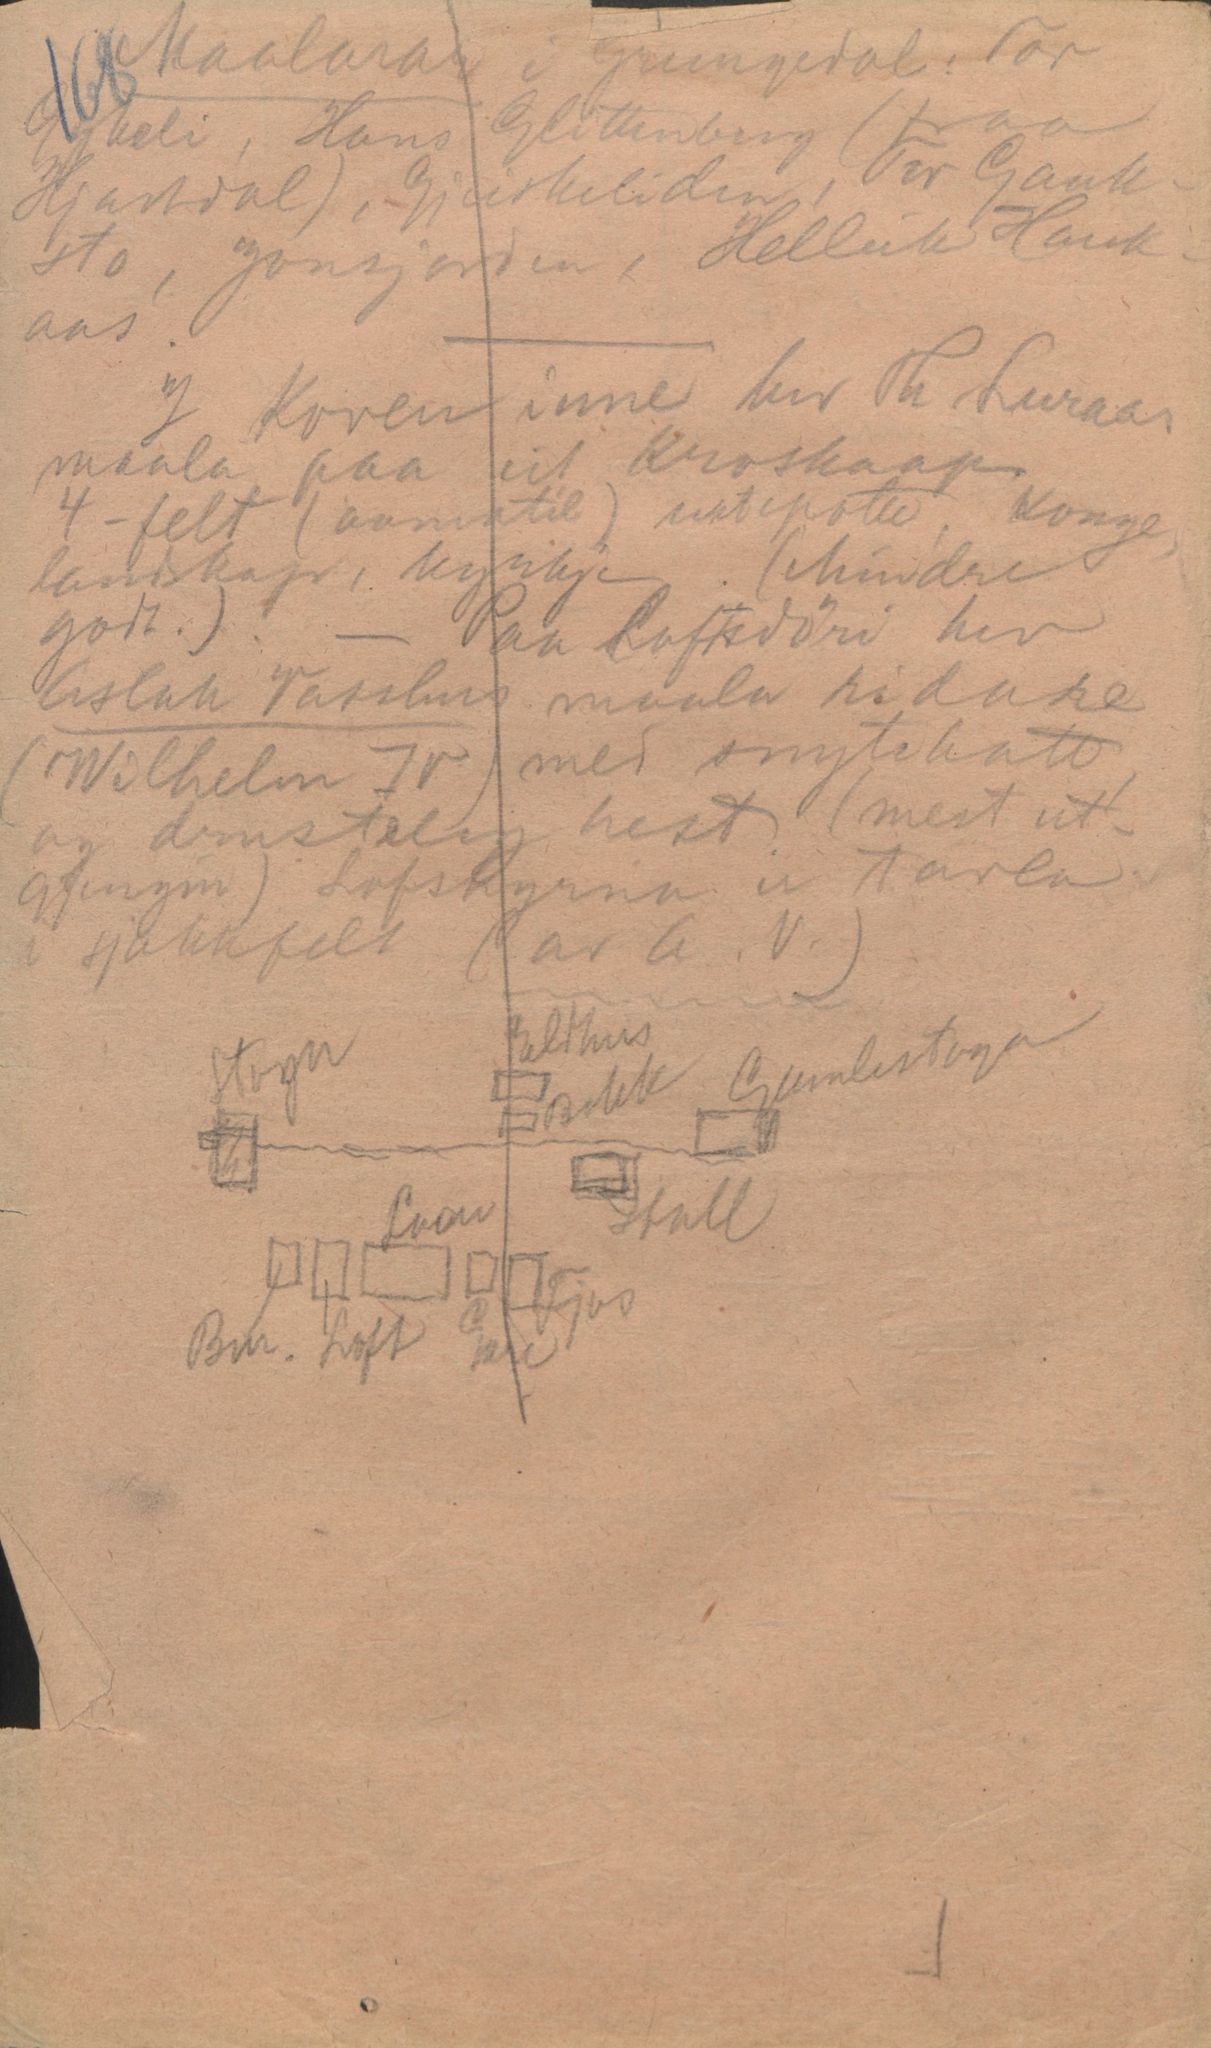 168 Maalarar i Grungedal: Tor
Gjuveli, Hans Glittenberg (fraa
Hjartdal), Gjeiskeliden, Tor Gauk-
sto, Jonsjorden, Helleik Hauk-
aas.
I Koven inne hev Th Luraas
maala paa eit Kroskaap
4-felt (aamotil) urtepotte, Konge,
landskap, kyrkje. (Mindre
godt.). — Paa Loftsdöri hev
Aslak Vasshus maala ridare
(Wilhelm IV) med snytehatt,
og drusteleg hest. (mest ut-
gjengin) Lofskyrna er tavla
i sjakkfelt (av A. V.)
Eldhus
Stogu
Bekk
Gamlestoga
Stall
Loau
Fjos
Bur. Loft